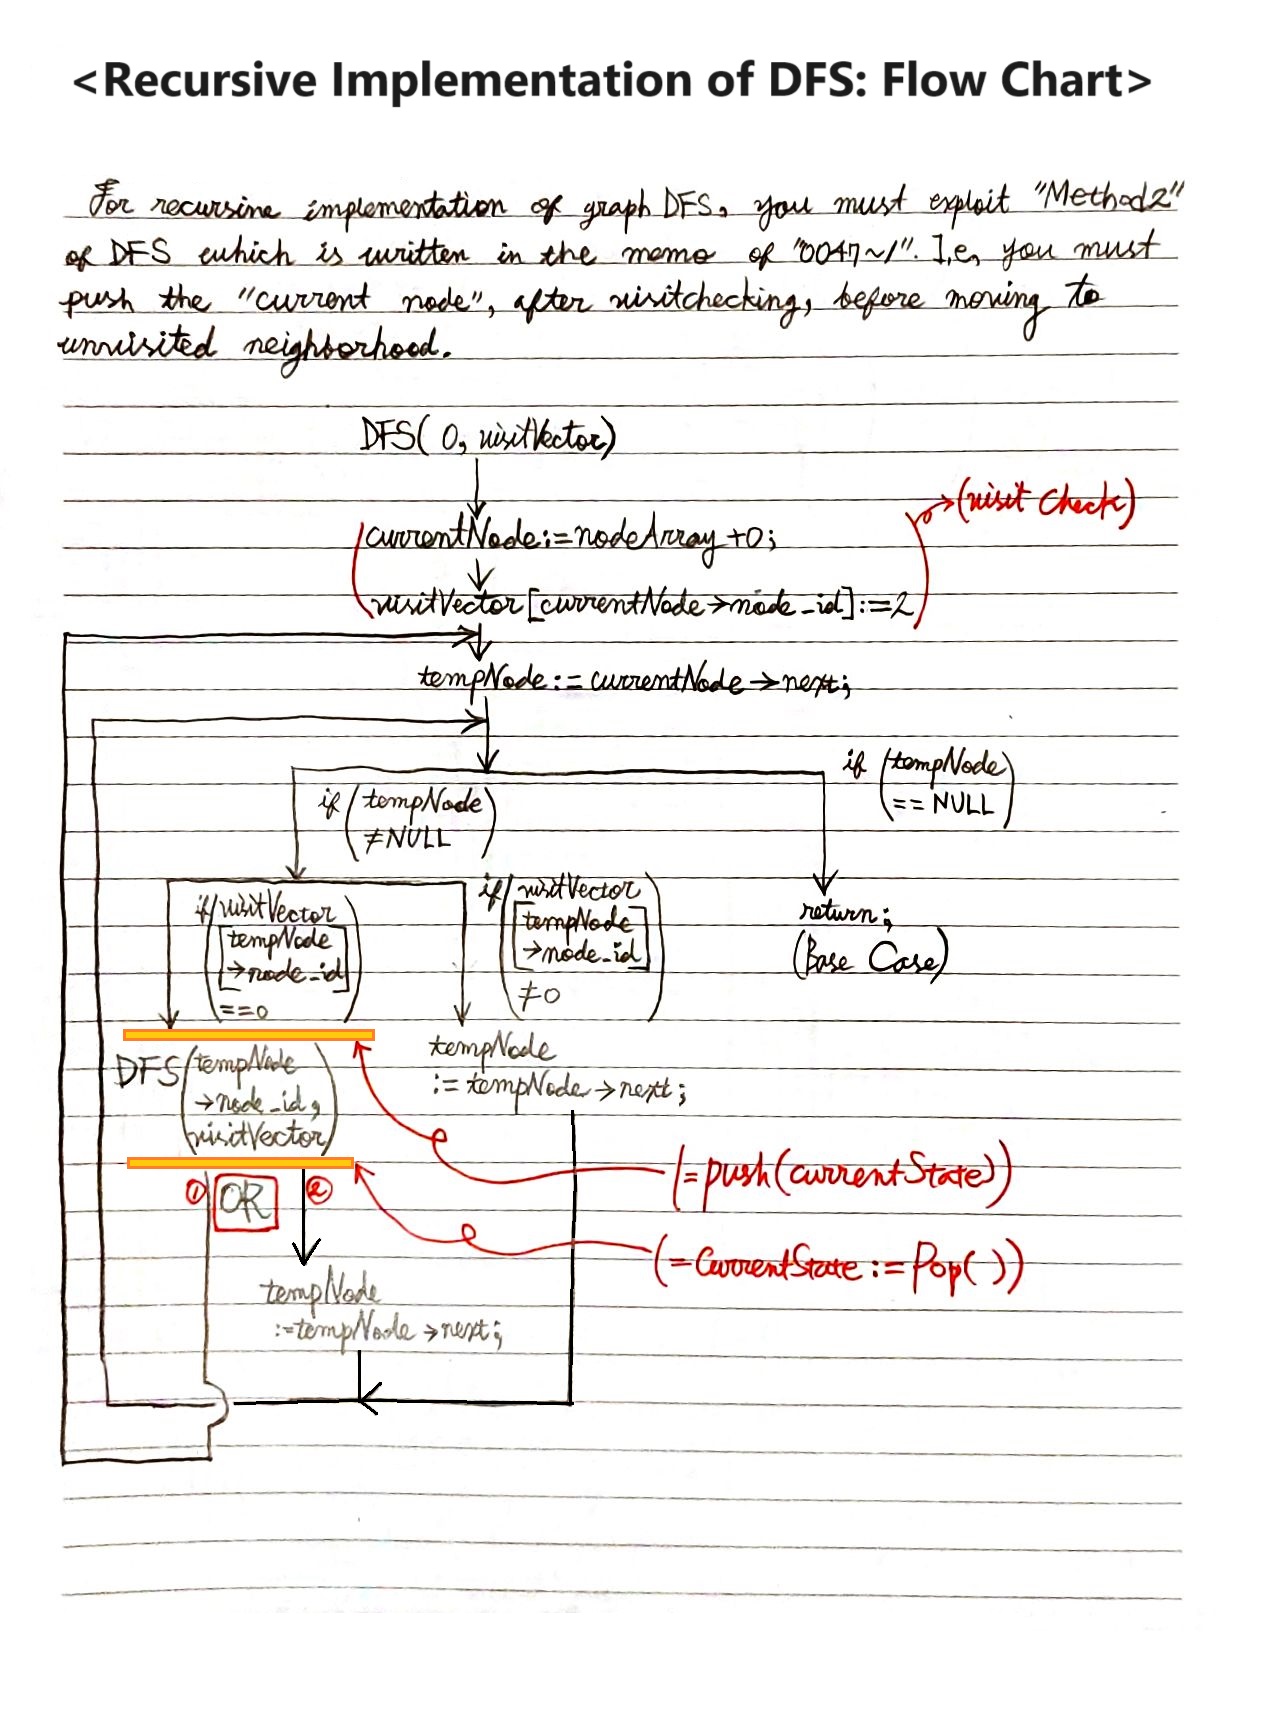 <Recursive Implementation of DFS: Flow Chart>
For recursive implementation of graph DFS, you must exploit "Method2"
of DFS which is written in the memo of "0047~1". I,e, you must
push the "current node", after visitchecking, before moving to
unvisited neighborhood.
DFS( 0, visitVector)
(visit Check)
currentNode:=nodeArray +0;
visitVector[currentNode→node_id]:=2
tempNode:= currentNode→next;
if (tempNode
== NULL)
if (tempNode
≠NULL)
if (visitVector
[tempNode
→node_id]
==0)
if (visitVector
[tempNode
→node_id]
≠0)
return;
(Base Case)
DFS(tempNode
→node_id,
visitVector)
tempNode
:= tempNode→next;
(=push(currentState))
① OR ②
(=CurrentState:=Pop( ))
tempNode
:=tempNode→next;